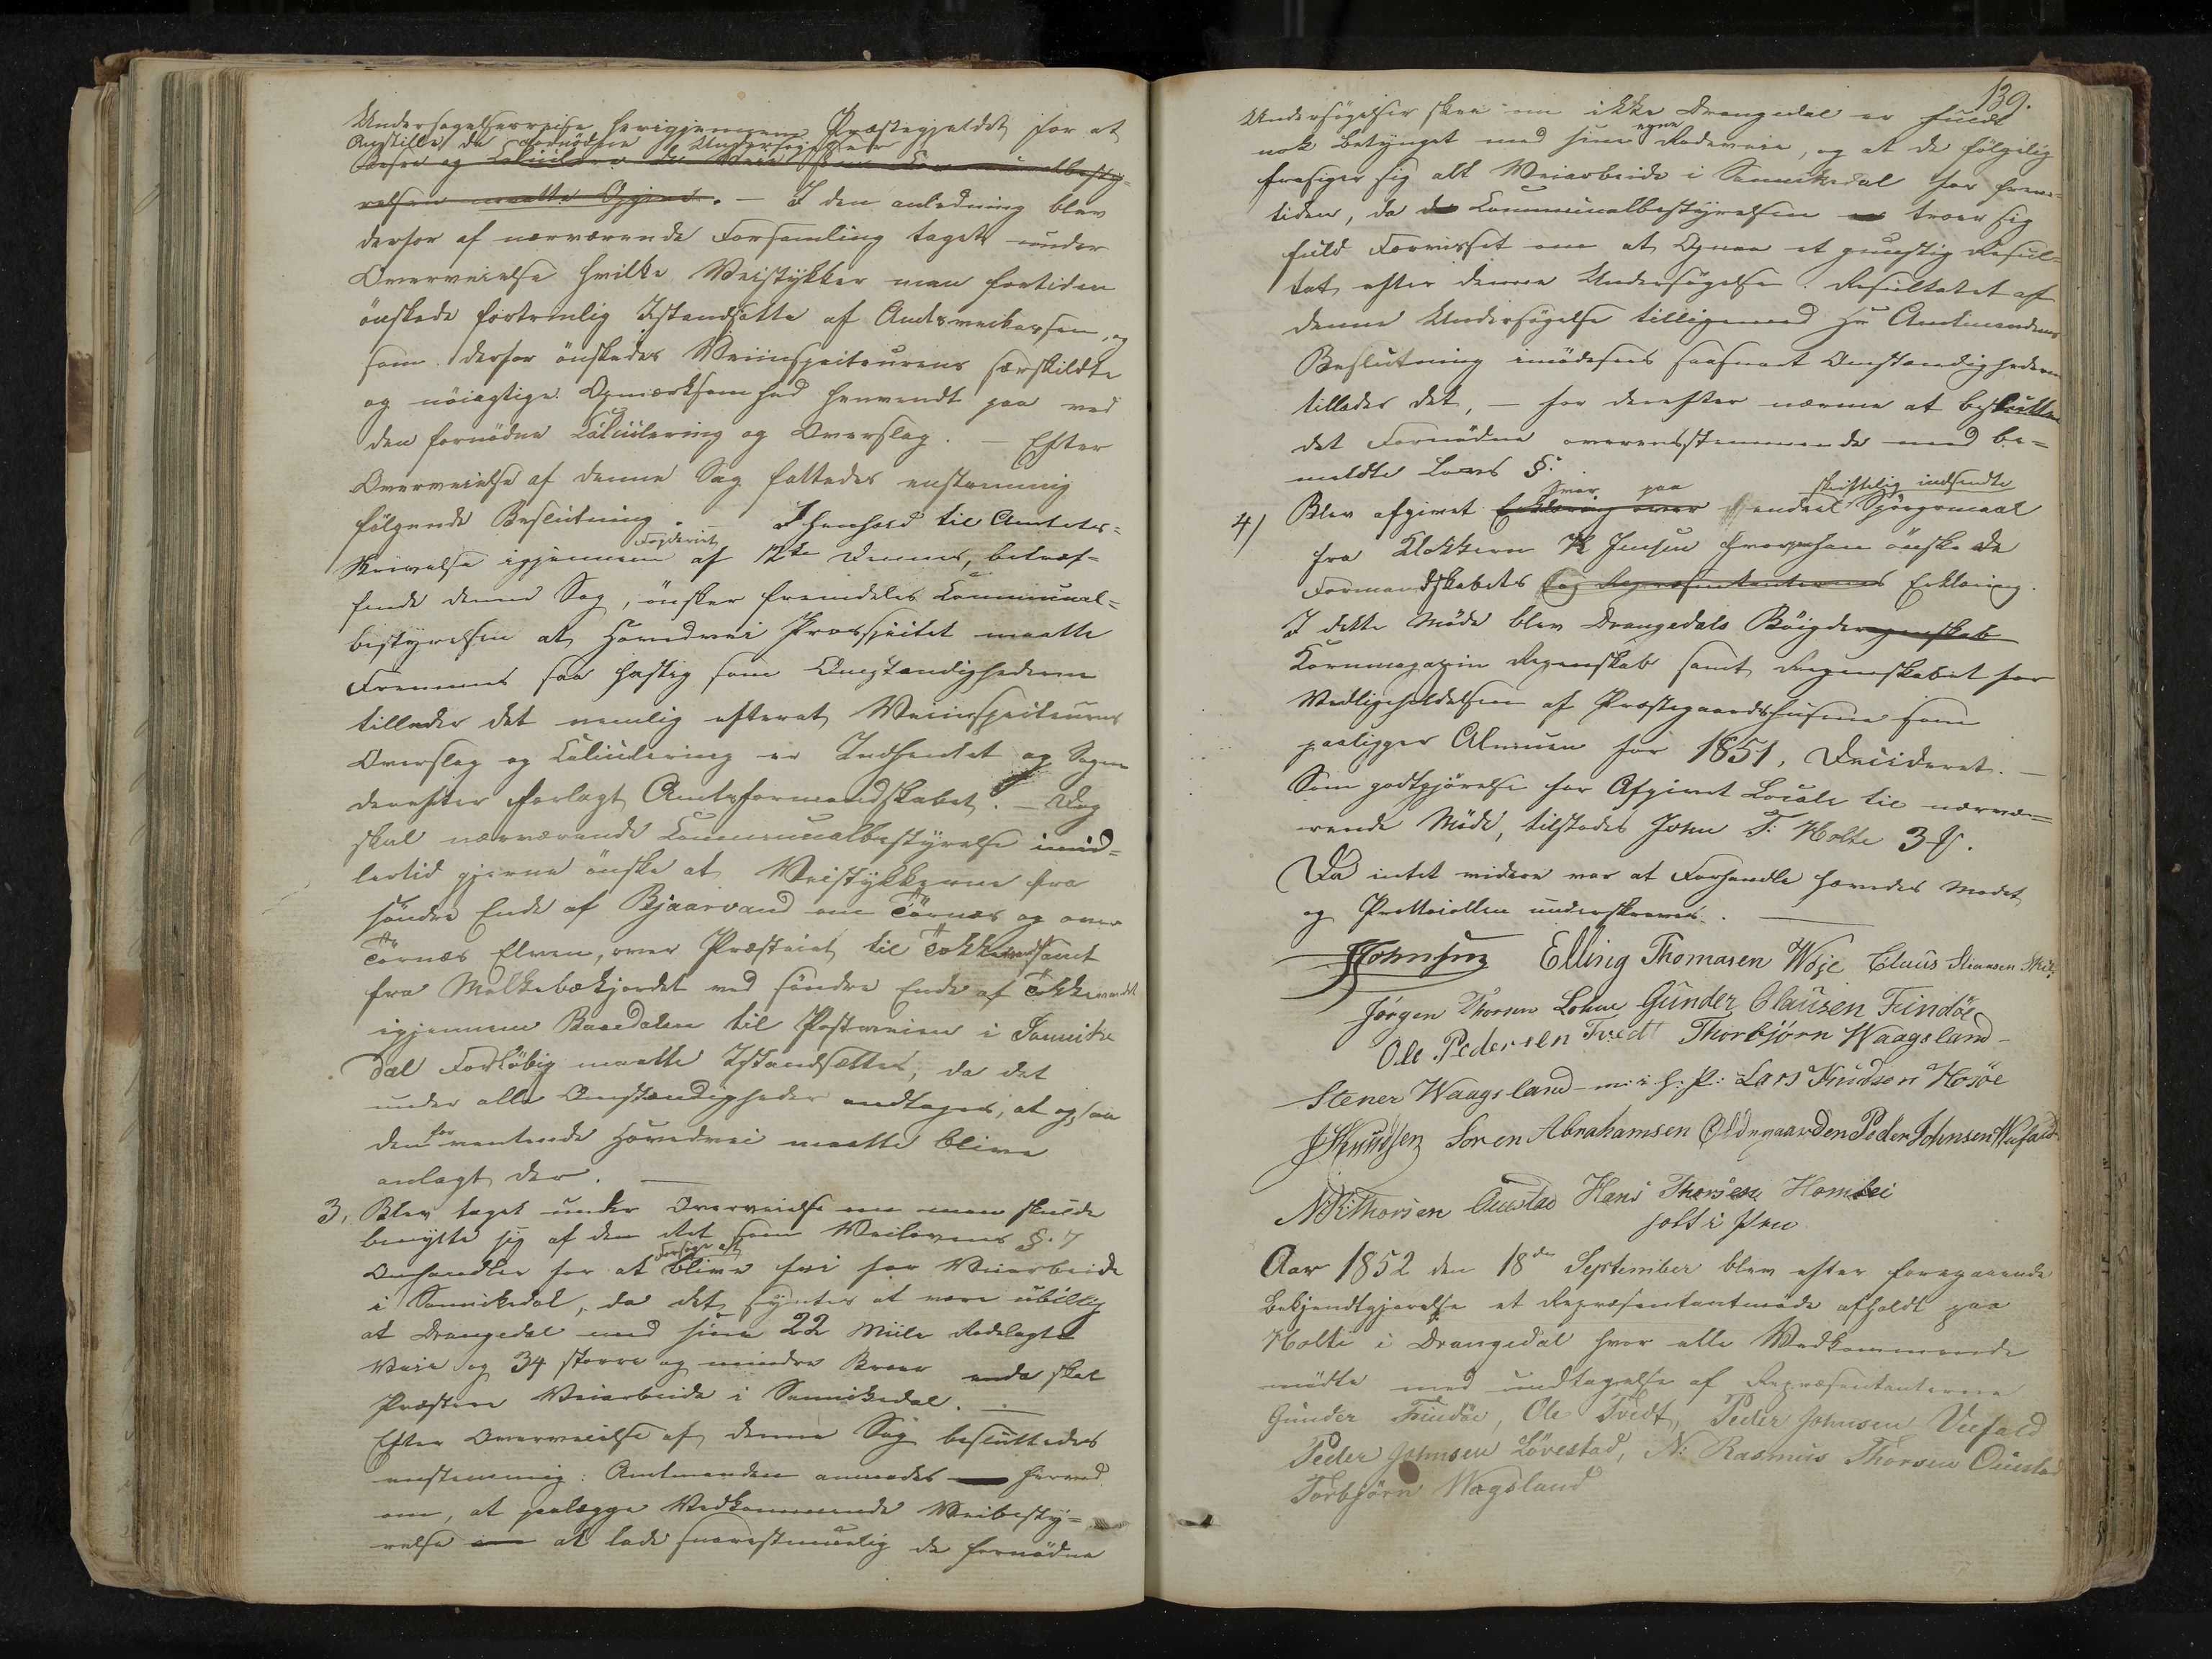 Undersøgelsesreise herigjennem Præstegjeldet for at
Anstille de fornødne Undersøgelser
Besee og Calculere de Veie som Communalbesty-
relsen maatte Opgive. — I den anledning blev
derfor af nærværende Forsamling taget under
Overveielse hvilke Veistykker man fortiden
önskede fortrinlig Istandsatte af Amtsveikassen, og
som derfor önskedes Veiinspecteurens særskildte
og nöiagtige Opmærksomhed henvendt paa ved
den fornødne Calculering og Overslag. — Efter
Overveielse af denne Sag fattedes enstemmig
følgende Beslutning. — I henhold til Amtets-
Skrivelse igjennem Fogderiet af 12te Dennes, betræf-
fende denne Sag, önsker fremdeles Communal-
bestyrelsen at Hovedvei Prosjectet maatte
Fremmes saa hastig som Omstændighederne
tillader det nemlig efterat Veiinspecteurens
Overslag og Calculering er Indhentet og Sagen
derefter forlagt Amtsformandskabet. — Dog
skal nærværende Communalbestyrelse imid-
lertid gjerne önske at Veistykkerne fra
söndre Ende af Bjaarvand om Törnæs og over
Törnæs Elven, over Præsteiet til Tokkevand samt
fra Melkebækjordet ved söndre Ende af Tokkevandet
igjennem Baredalen til Postveien i Sannike
dal Forløbig maatte Istandsettes, da det
under alle Omstændigheder andtages, at ogsaa
den forventende Hovedvei maatte blive
anlagt der.
3, Blev taget under Overveielse om man skulde
benytte sig af den Ret som Veilovens §. 7
Omhandler for at Forsøge at blive fri for Veiarbeide
i Sannikedal, da det syntes at være ubillig
at Drangedal med sine 22 Miile Rodelagte
Veie og 34 større og mindre Broer enda skal
Præstere Veiarbeide i Sannikedal. —
Efter Overveielse af denne Sag besluttedes
enstemmig: Amtmanden anmodes herved
om, at paalægge Vedkommende Veibesty-
relse om at lade snarestmuelig de fornødne
139.
Undersøgelser skee om ikke Drangedal er fuldt
nok betynget med sine egne Rodeveie, og at de følgelig
frasiger sig alt Veiarbeide i Sannikedal for frem-
tiden, da de Communalbestyrelsen troer sig
fuld Forvisset om at Opnaa et gunstig Resul-
tat efter denne Undersøgelse. Resultatet af
denne Undersøgelse tilligemed Hr Amtmandens
Beslutning imødesees saasnart Omstændighederne
tillader det, — for derefter nærme at beslutte
det Fornødne overensstemmende med be-
meldte Lovs §.
4) Blev afgivet Svar paa Erklæring over endeel skriftelig indsendte Spørgsmaal
fra Klokkeren K Jensen hvorpaa han önskede
Formandskabets og Repræsentanternes Erklæring.
I dette Møde blev Drangedals Bøigderegnskab
Kornmagazin Regnskab samt Regnskabet for
Vedligeholdelsen af Præstegaardshusene som
paaligger Almuen for 1851, Decideret. —
Som godtgjørelse for Afgivet Locale til nærvæ-
rende Møde, tilstodes John T: Holte 3 Sp.
Da intet videre var at Forhandle hævedes Mødet
og Prottocollen underskreves. —
JJohnsen Elling Thomasen Woje Claus Stiansen
Jørgen Thorsen Lohne Gunder Clausen Findöe
Ole Pedersen Tvedt Thorbjörn Waagsland
Stener Waagsland m: i h: P: Lars Knudsen Hosöe
JKnudsen Soren Abrahamsen Oldegaarden Peder Johnsen Wefald
N R Thorsen Ouestad Hans Thorsen Hambei
holt i Pen
Aar 1852 den 18de September blev efter foregaaende
bekjendtgjørelse et Repræsentantmøde afholdt paa
Holte i Drangedal hvor alle Vedkommende
mødte med undtagelse af Repræsentanterne
Gunder Findöe, Ole Tvedt, Peder Johnsen Vefald
Peder Johnsen Lövestad, N: Rasmus Thorsen Ouestad
Torbjörn Wagsland